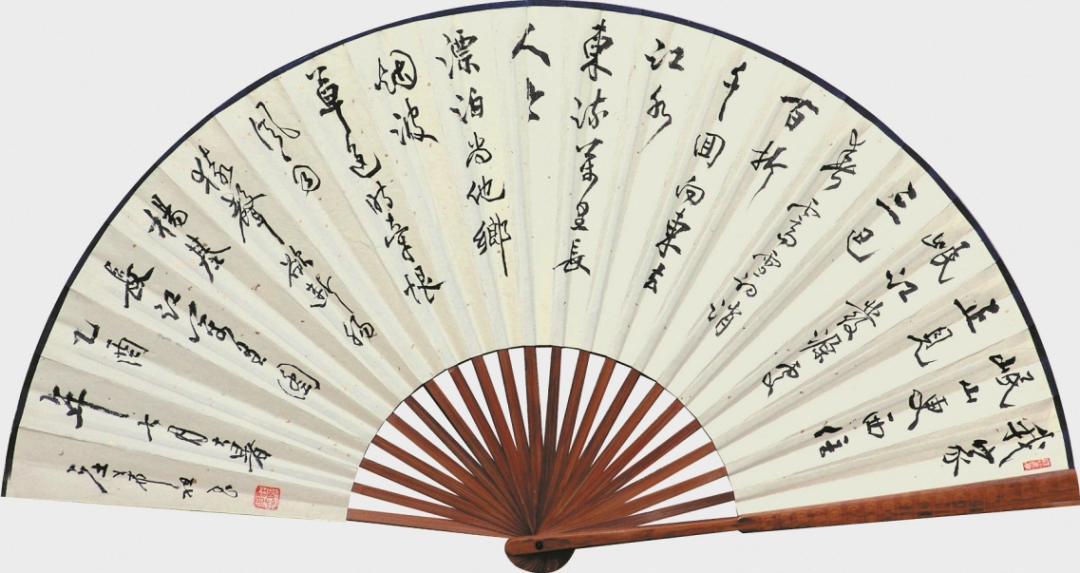 我家
岷山更西住
正見
岷江發源處
三巴
春霽雪初消
百折
千回向東去
江水
東流萬里長
人今
漂泊尚他鄉
烟波
草色時牽恨
風雨
猿聲欲斷腸
楊基
長江萬里圖
乙酉
年七月書